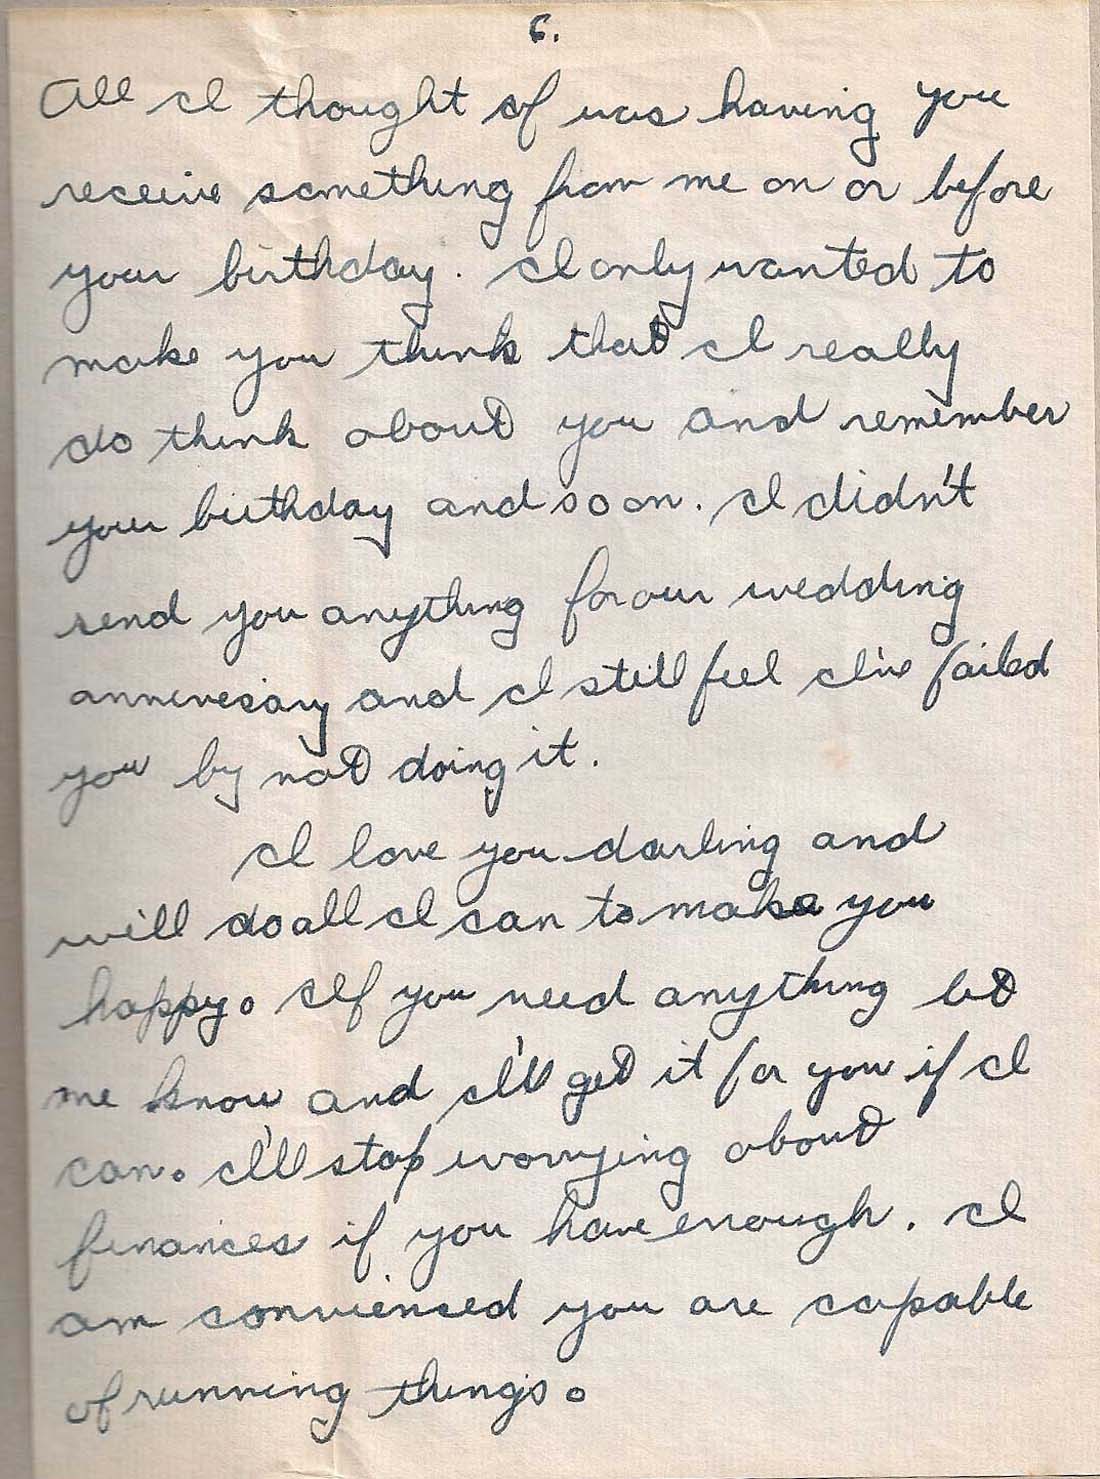 6.
All I thought of was having you
receive something from me on or before
your birthday. I only wanted to
make you think that I really
do think about you and remember
your birthday and so on. I didn't
send you anything for our wedding
anniversary and I still feel I've failed
you by not doing it.
I love you darling and
will do all I can to make you
happy. If you need anything let
me know and I'll get it for you if I
can. I'll stop worrying about
finances if you have enough. I
am convienced you are capable
of running things.